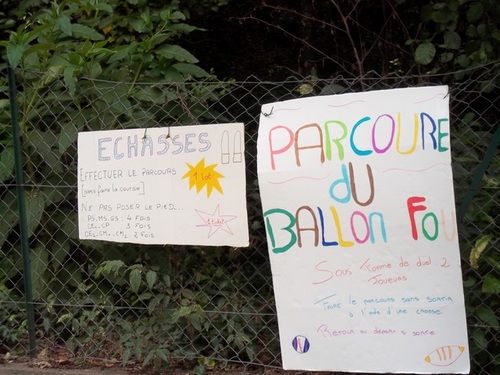 ECHASSES
EFFECTUER LE PARCOURS
[sans faire la course]
1 Lot
NE PAS POSER LE PIED...
PS, MS, GS : 4 FOIS
3 FOIS
CE2, CM1, CM2 2 FOIS
1 ticket
PARCOURE
DU
BALLON FOU
Sous forme de duel 2
Joueurs
Faire le parcours sans sortir
a l'aide d'une
Retour au depart